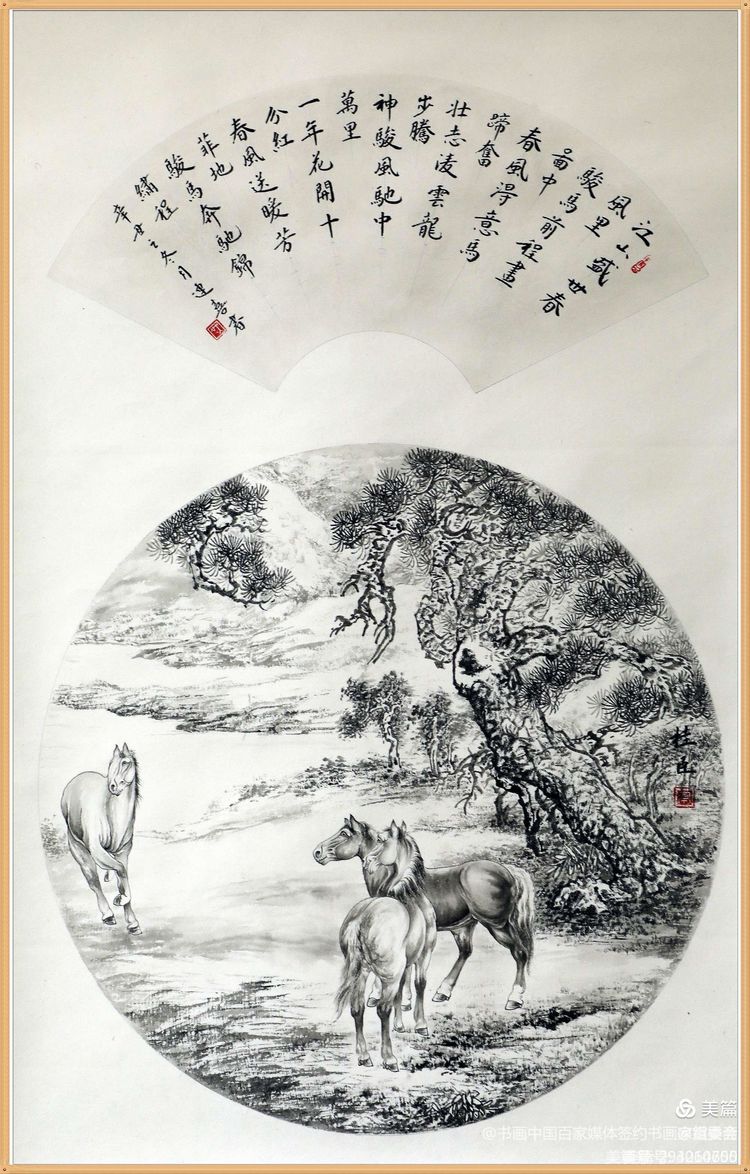 江山盛世春
風里
駿馬
畐中前程畫
春風得意馬
蹄奮
壮志凌雲龍
步騰
神駿風馳中
萬里
一年花開十
分紅
春風送暖芳
菲地
駿馬奔馳錦
繡程
辛丑之冬月建春書
桂
美篇
@书画中国百家媒体签约书画家
美篇号